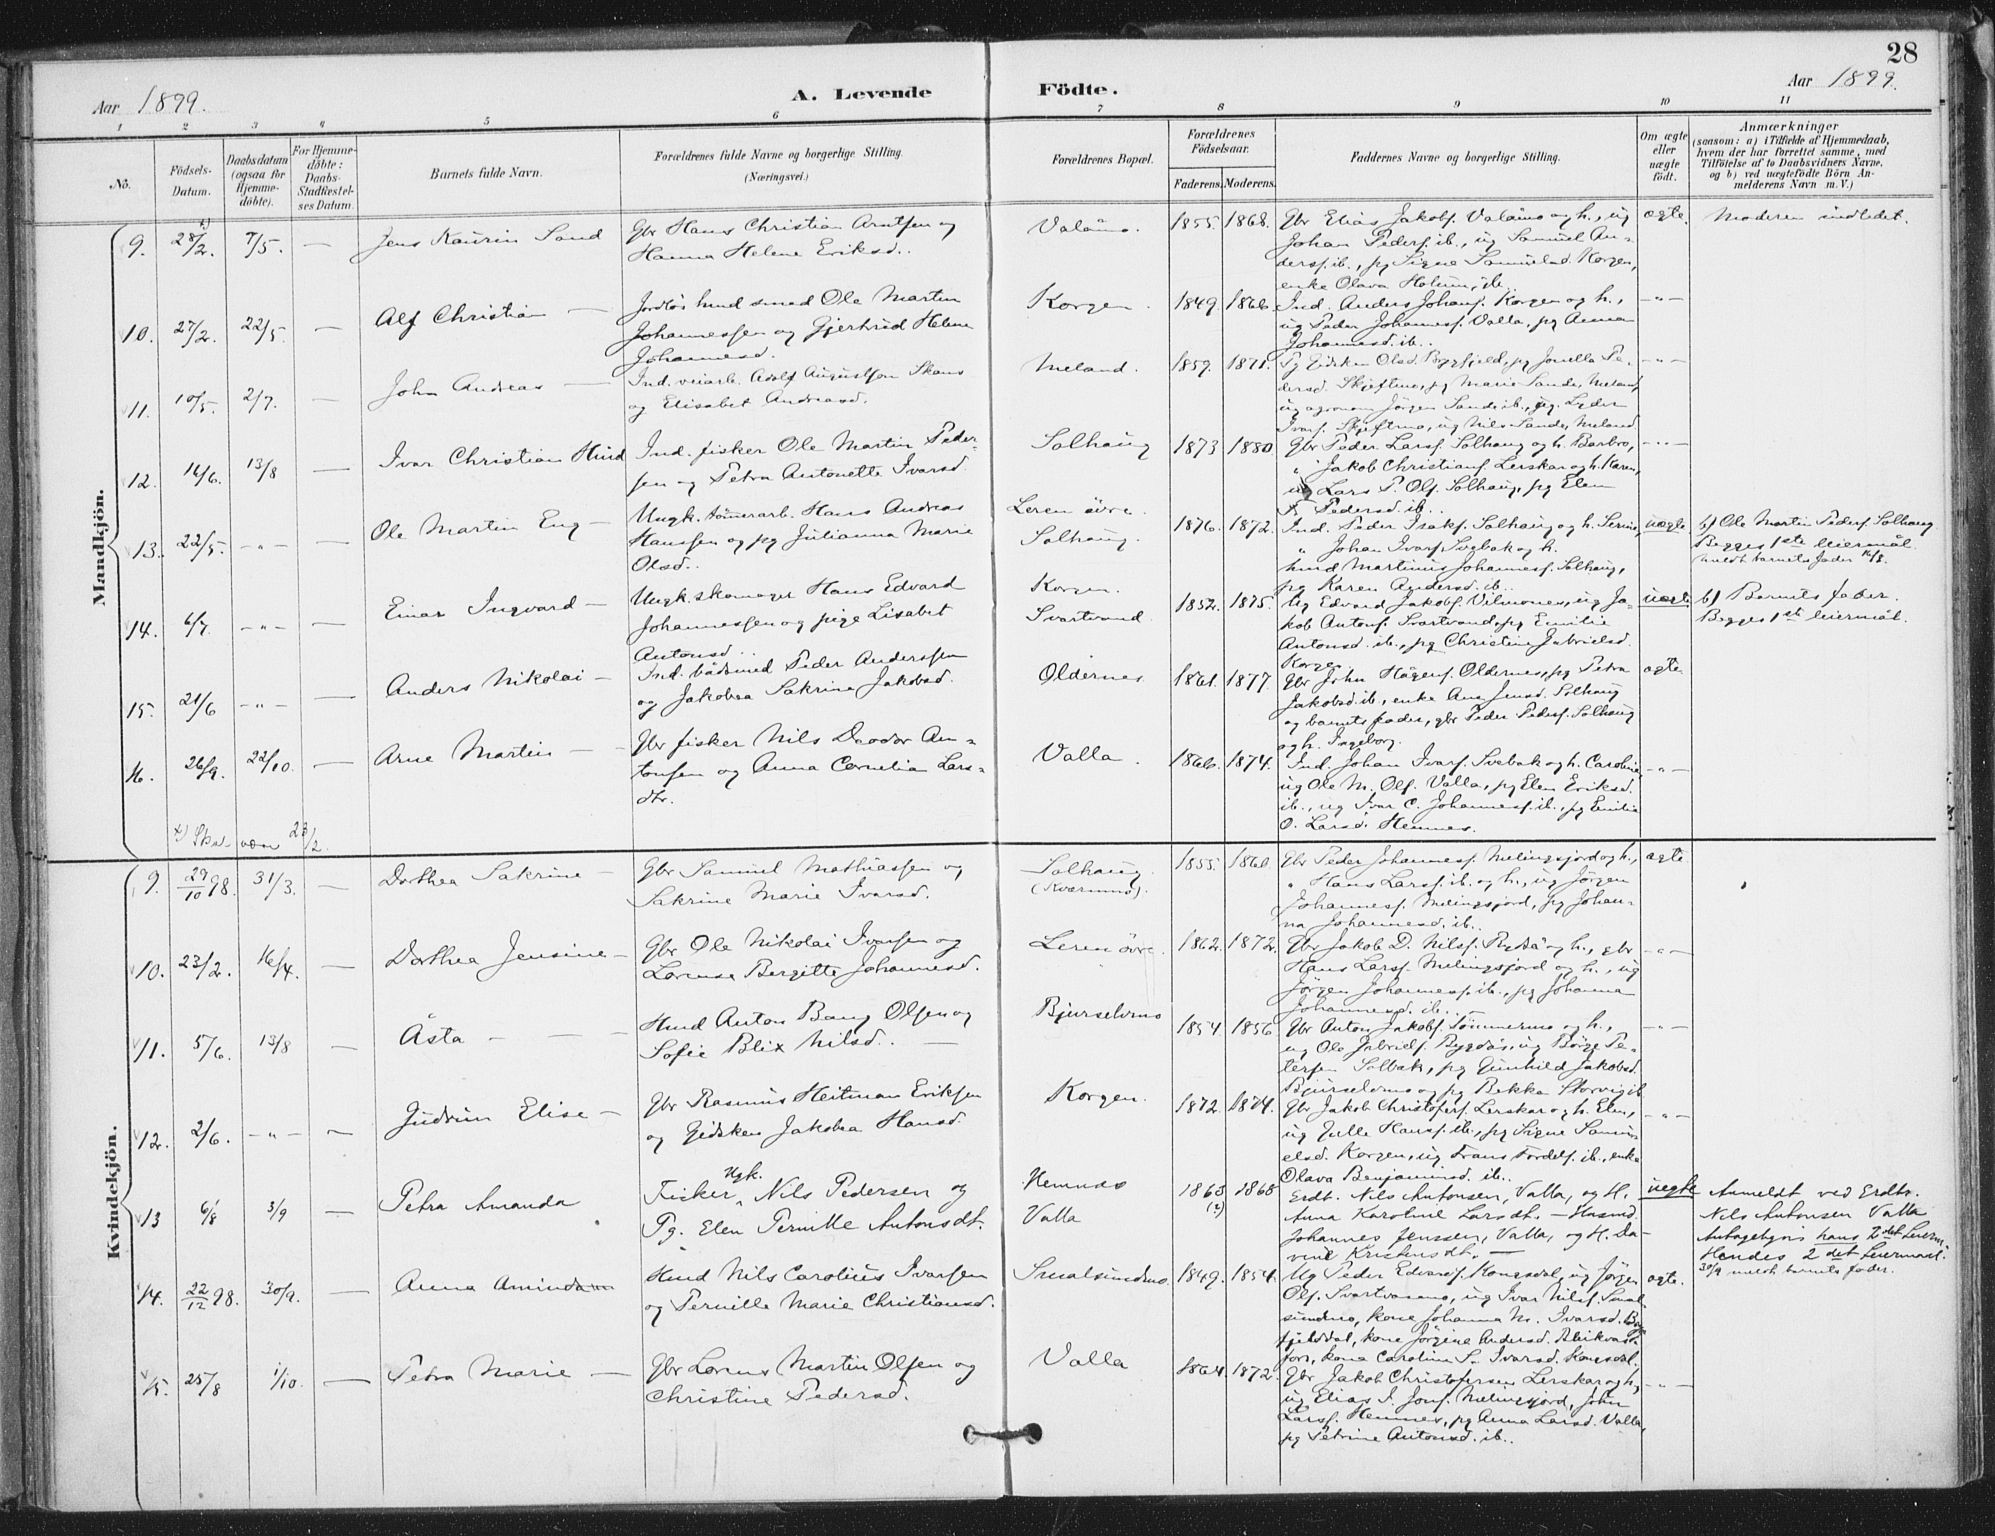 28
Aar 1899.
A. Levende
Födte.
Aar 1899.
1 2 3 4 5 6 7 8 9 10 11
No.
Födsels-Datum.
Daabsdatum (ogsaa for Hjemme-döbte).
For Hjemme-döbte: Daabs-Stadfæstel-ses Datum.
Barnets fulde Navn.
Forældrenes fulde Navne og borgerlige Stilling.
(Næringsvei.)
Forældrenes Bopæl.
Forældrenes Födselsaar.
Faderens. Moderens.
Faddernes Navne og borgerlige Stilling.
Om ægte eller uægte födt.
Anmærkninger
(saasom: a) i Tilfælde af Hjemmedaab,
hvem der har forrettet samme, med
Tilföielse af to Daabsvidners Navne,
og b) ved uægtefödte Börn An-
melderens Navn m. V.)
Mandkjön.
9. 28/2. 7/5. — Jens Kaurin Sand
Gbr Hans Christian Arntsen og
Hanna Helene Eriksd..
Valåmo. 1855. 1868.
Gbr Elias Jakobs. Valåmo og h., ug
Johan Peders. ib., ug Samuel An-
ders. ib., pg Signe Samuelsd. Korgen,
enke Olava Holum, ib..
ægte. Moderen indledet.
10. 27/2. 22/5. — Alf Christian —
Jordløs husmand smed Ole Martin
Johannessen og Gjertrud Helene
Johannesd.
Korgen. 1849. 1866.
Ind. Anders Johans. Korgen og h.,
ug Peder Johannes. Valla, pg Anna
Johannesd. ib..
—"—
11. 10/5. 2/7. — John Andreas —
Ind. veiarb. Adolf Augustsen Skans
og Elisabet Andreasd.
Meland. 1859. 1871.
Pg Gidsken Olsd. Bygfjeld, pg Jonella Pe-
dersd. Skjeftmo, pg Marie Sande, Meland,
ug agronom Jörgen Sande ib., ug. Peder
Ivars. Skjeftmo, ug Nils Sande, Meland.
—"—
12. 14/6. 13/8 — Ivar Christian Hind
Ind. fisker Ole Martin Peder-
sen og Petra Antonette Ivarsd.
Solhaug 1873 1880.
Gbr Peder Lars. Solhaug og h. Barbro,
" Jakob Christians. Lerskar og h. Karen,
ug Lars P. Ols. Solhaug, pg Elen
F. Pedersd. ib..
—"—
13. 22/5. —"— — Ole Martin Eng —
Ungk. tömmerarb. Hans Andreas
Hanssen og pg Julianna Marie
Olsd..
Leren övre.
Solhaug. 1876. 1872.
Ind. Peder Isaks. Solhaug og h. Serine,
" Johan Ivars. Svebak og h.
husmd Martinus Johannes. Solhaug,
pg Karen Andersd. ib..
uægte b) Ole Martin Peders. Solhaug
Begges 1ste leiermål.
meldt barnets fader 14/8.
14. 6/7. —"— — Einar Ingvard —
Ungk. skomager Hans Edvard
Johannessen og pige Lisabet
Antonsd...
Korgen.
Svartvand. 1852. 1875.
Ug Edvard Jakobs. Vilmones, ug Ja-
kob Antons. Svartvand, pg Emilie
Antonsd. ib., pg Christine Gabrielsd.
Korgen.
uægte. b) Barnets fader.
Begges 1ste leiermål.
15. 21/6 —"— — Anders Nikolai —
Ind. båtsmed Peder Anderssen
og Jakobea Sakrine Jakobsd.
Oldernes 1861. 1877.
Gbr John Hågens. Oldernes, pg Petra
Jakobsd. ib., enke Ane Jensd. Solhaug
og barnets fader, gbr Peder Peders. Solhaug
og h. Ingeborg.
ægte.
16. 26/9. 22/10. — Arne Martin —
Gbr fisker Nils Deodor An-
tonsen og Anna Cornelia Lars-
dtr.
Valla. 1866. 1874.
Ind. Johan Ivars. Svebak og h. Caroline,
ug Ole M. Ols. Valla, pg Elen Eriksd.
ib., ug Ivar C. Johannes. ib., pg Emilie
O. Larsd. Hemnes.
—"—
x) Skal være 23/2.
Kvindekjön.
9. 29/10 98. 31/3. — Dorthea Sakrine —
Gbr Samuel Mathiassen og
Sakrine Marie Ivarsd.
Solhaug.
(Kværnmo). 1855. 1860.
Gbr Peder Johannes. Melingsjord og h.,
" Hans Lars. ib. og h., ug Jörgen
Johannes. Melingsjord, pg Johan-
na Johannesd. ib..
ægte.
10. 23/2. 16/4. — Dorthea Jensine —
Gbr Ole Nikolai Ivarsen og
Lorense Bergitte Johannesd.
Leren övre. 1862. 1872.
Gbr Jakob D. Nils. Bygdå og h., gbr
Hans Lars. Melingsjord og h., ug
Jörgen Johannes. ib., pg Johanna
Johannesd. ib..
—"—
11. 5/6. 13/8 — Åsta — —
Husmd Anton Bang Olsen og
Sofie Blix Nilsd.. —
Bjurselvmo 1854. 1856
Gbr Anton Jakobs. Tömmermo og h.,
ug Ole Gabriels. Bygdås, ug Börge Pe-
tersen Solbak, pg Gunhild Jakobsd.
Bjurselvmo og pg Bekka Storvig ib.
—"—
12. 2/6. —"— — Gudrun Elise —
Gbr Rasmus Heitman Eriksen
og Gidsken Jakobea Hansd.
Korgen. 1872. 1874.
Gbr Jakob Christofers. Lerskar og h. Elen,
ug Julle Hans. ib., pg Signe Samu-
elsd. Korgen, ug Frans Fordels. ib., enke
Olava Benjaminsd. ib..
—"—
13 6/8 3/9 — Petra Amanda
Ugk.
Fisker Nils Pedersen og
Pg. Elen Pernille Antonsdt.
Hemnes
Valla 1863 (?) 1868
Erdt. Nils Antonsen, Valla, og H.
Anna Karoline Larsdt. — Husmd.
Johannes Jenssen, Valla, og H. Da-
vine Kristensdt. —
uegte Anmeldt ved Erdtr.
Nils Antonsen Valla
Antageligvis hans 2det Leierm.
Hendes 2det Leiermaal.
30/9 meldt barnets fader.
14. 22/12 98. 30/9. — Anna Aminda
Husmd Nils Carolius Ivarsen
og Pernille Marie Christiansd.
Smalsundmo. 1849. 1854.
Ug Peder Edvards. Kongsdal, ug Jörgen
Ols. Svartvasmo, ug Ivar Nils. Smal-
sundmo, kone Johanna M. Ivarsd. Byg-
fjelddal, kone Jörgine Andersd.
fors, kone Caroline S. Ivarsd. Kongsdal.
ægte.
15. 25/8 1/10. — Petra Marie —
Gbr Lorens Martin Olsen og
Christine Pedersd.
Valla 1864. 1872.
Gbr Jakob Christofersen Lerskar og h,
ug Elias I. Jons. Melingsjord, John
Lars. Hemnes, pg Anna Larsd. Valla,
pg Petrine Antonsd. ib..
—"—